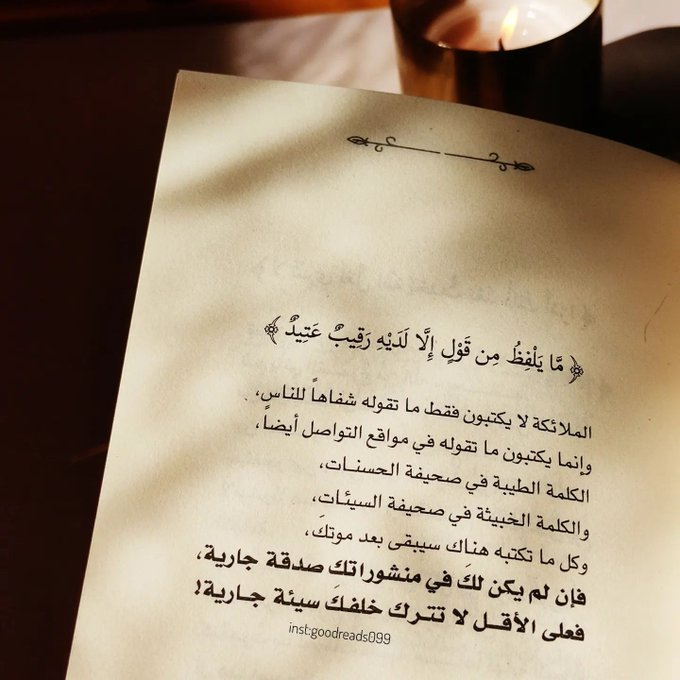 ﴿ مَّا يَلْفِظُ مِن قَوْلٍ إِلَّا لَدَيْهِ رَقِيبٌ عَتِيدٌ ﴾
الملائكة لا يكتبون فقط ما تقوله شفاهاً للناس،
وإنما يكتبون ما تقوله في مواقع التواصل أيضاً،
الكلمة الطيبة في صحيفة الحسنـات،
والكلمة الخبيثة في صحيفة السيئـات،
وكل ما تكتبه هنـاك سيبقى بعد موتكَ،
فإن لم يكن لكَ في منشوراتكَ صدقة جارية،
فعلى الأقـل لا تتـرك خلفـكَ سيئة جـارية!
inst:goodreads099